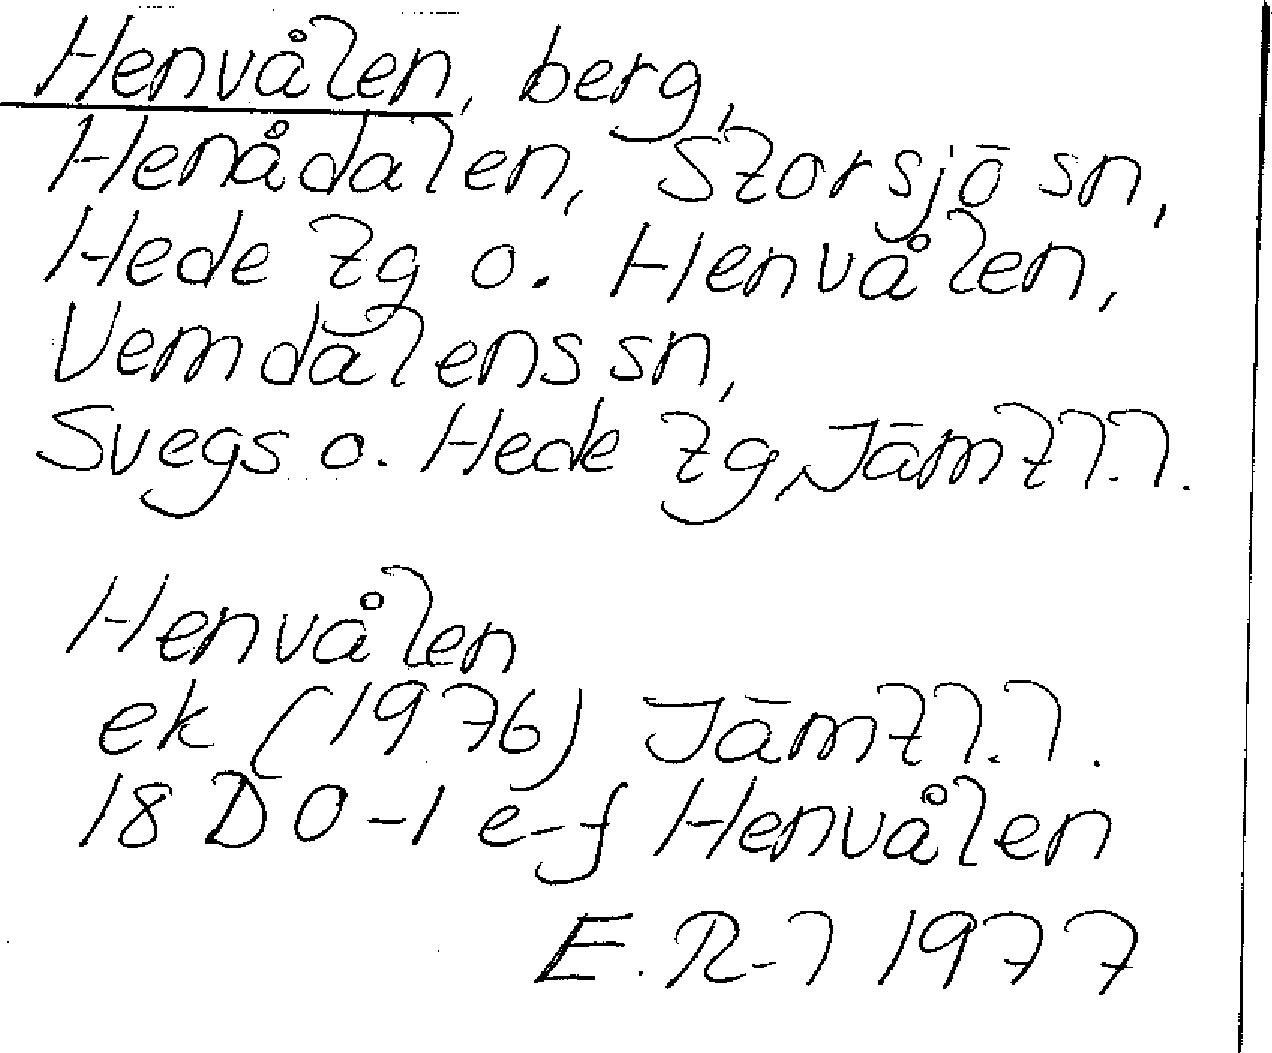 Henvålen, berg,
Henådalen, Storsjö sn,
Hede tg o. Henvålen,
Vemdalens sn,
Svegs o. Hede tg, Jämtl.l.
Henvålen
ek (1976) Jämtl.l.
18D 0-1 e-f Henvålen
E. R-l 1977